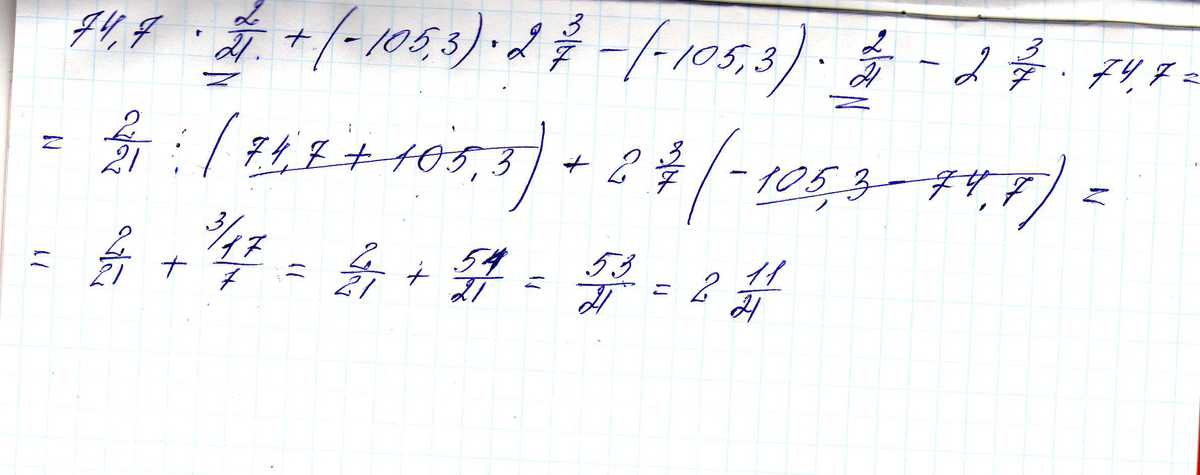 74,7 · 2/21 + (-105,3) · 2 3/7 - (-105,3) · 2/21 - 2 3/7 · 74,7 =
= 2/21 : (74,7 + 105,3) + 2 3/7 (-105,3 - 74,7) =
= 2/21 + 3/ 17/7 = 2/21 + 51/21 = 53/21 = 2 11/21